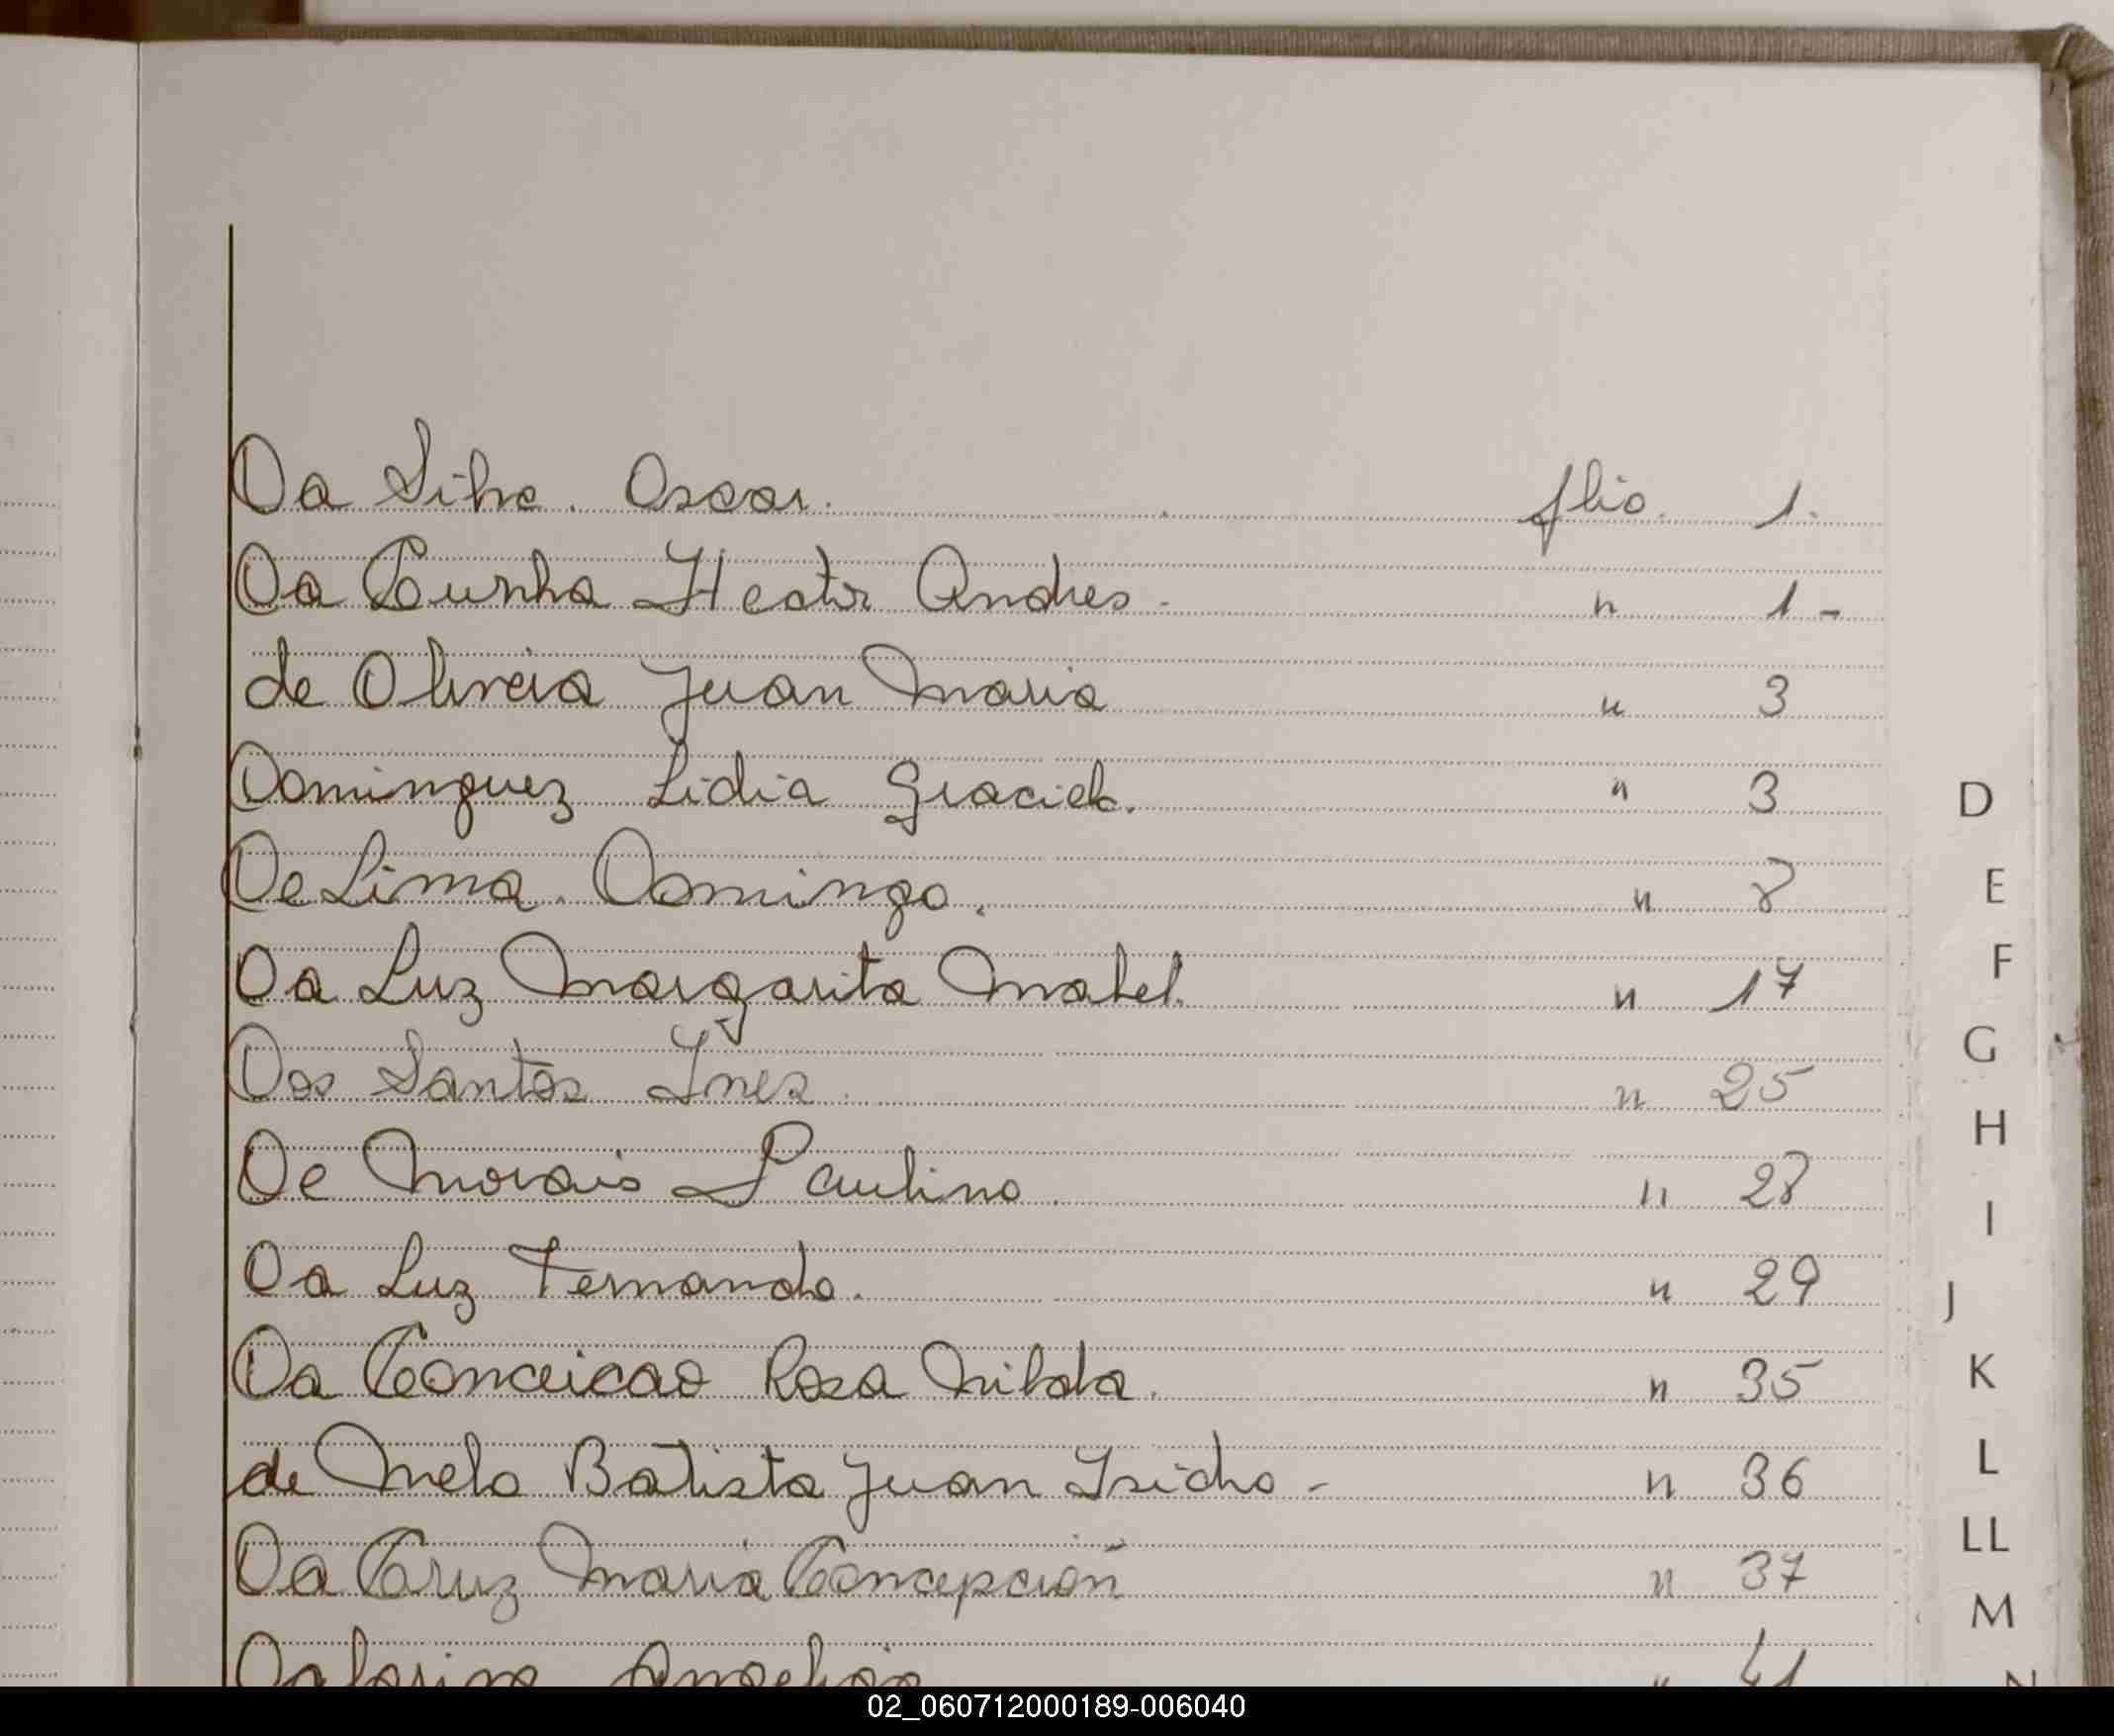 Da Silva. Oscar. flio. 1.
Da Cunha Hector Andres - " 1 -
de Olivera Juan Maria " 3
Dominguez Lidia Graciela. " 3
De Lima. Domingo. " 8
Da Luz Margarita Mabel. " 17
Dos Santos Ines. " 25
De Morais Paulino. " 28
Da Luz Fernando. " 29
Da Conceicao Rosa Nilda. " 35
de Melo Batista Juan Isidro - " 36
Da Cruz Maria Concepción " 37
" 41
D
E
F
G
H
I
J
K
L
LL
M
N
02_060712000189-006040